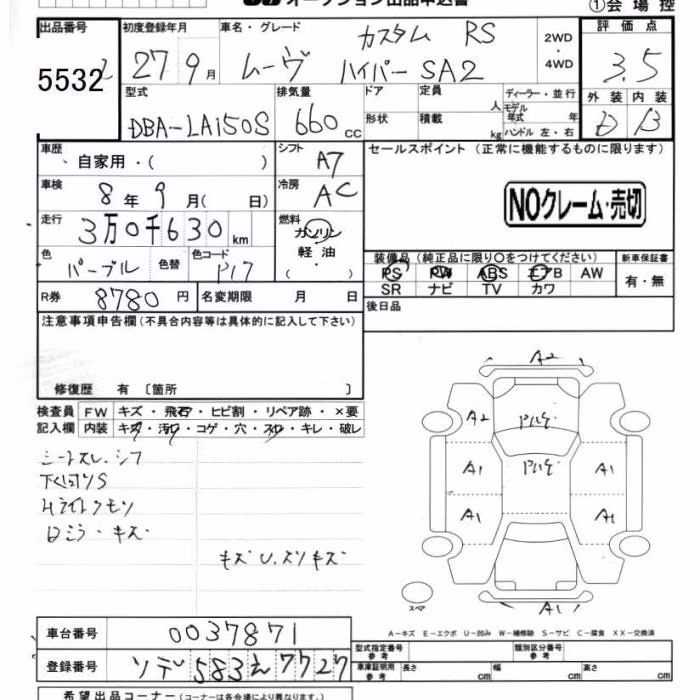 オークション出品申込書
①会場控
出品番号 初度登録年月 車名・グレード カスタム RS 2WD ・ 4WD 評価点
5532 27年9月 ムーヴ ハイパーSA2 3.5
型式 排気量 ドア 定員 人 ディーラー・並行 外装 内装
DBA-LA150S 660cc 形状 積載 kg モデル年式 年 ハンドル 左・右 D B
車歴 自家用・( ) シフト A7 セールスポイント (正常に機能するものに限ります)
車検 8年9月( 日) 冷房 AC NOクレーム・売切
走行 3万0千630km 燃料 ガソリン
軽油
( ・ )
色 パープル 色替 色コード P17
装備品 (純正品に限り○をつけてください) 新車保証書
PS PW ABS エアB AW 有・無
SR ナビ TV カワ
R券 8780円 名変期限 月 日 後日品
注意事項申告欄 (不具合内容等は具体的に記入して下さい)
修復歴 有 〔箇所 〕
検査員 FW キズ・飛石・ヒビ割・リペア跡・×要
記入欄 内装 キズ・汚れ・コゲ・穴・スレ・キレ・破レ
シートスレ.シワ
Hライトクモリ
ミラ・キズ
キズU.スリキズ
A2
A2
A1 A1
A1 A1
スペア
A1
A-キズ E-エクボ U-凹み W-補修跡 S-サビ C-腐食 XX-交換済
車台番号 0037871
型式指定番号 参考 類別区分番号 参考
登録番号 583え7727
車庫証明用 参考 長さ cm 幅 cm 高さ cm
希望出品コーナー (コーナーは各会場により異なります。)